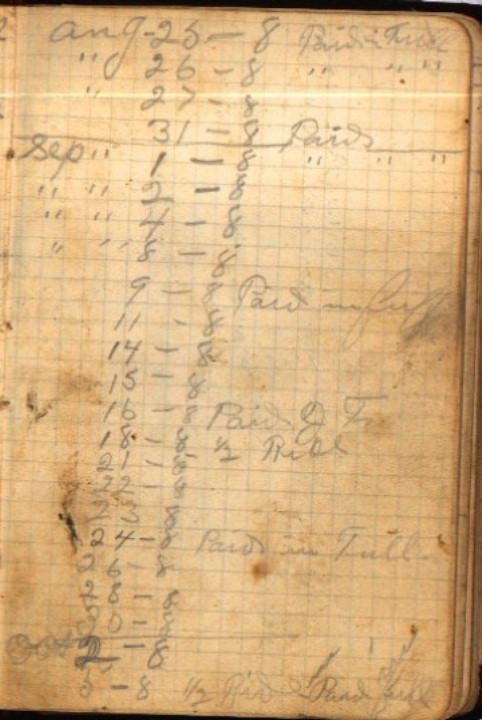 Aug - 25 - 8 Paid in Full
" 26 - 8 " " "
" 27 - 8
31 - 8 Paid
Sep " 1 - 8 " " "
" " 2 - 8
" " 4 - 8
" " 8 - 8
9 - 8 Paid in full
11 - 8
14 - 8
15 - 8
16 - 8 Paid
18 - 8 1/2
21 - 8
22 - 8
23 8
24 - 8 Paid in Full
26 - 8
28 - 8
30 - 8
Oct 2 - 8
5 - 8 1/2 Paid full